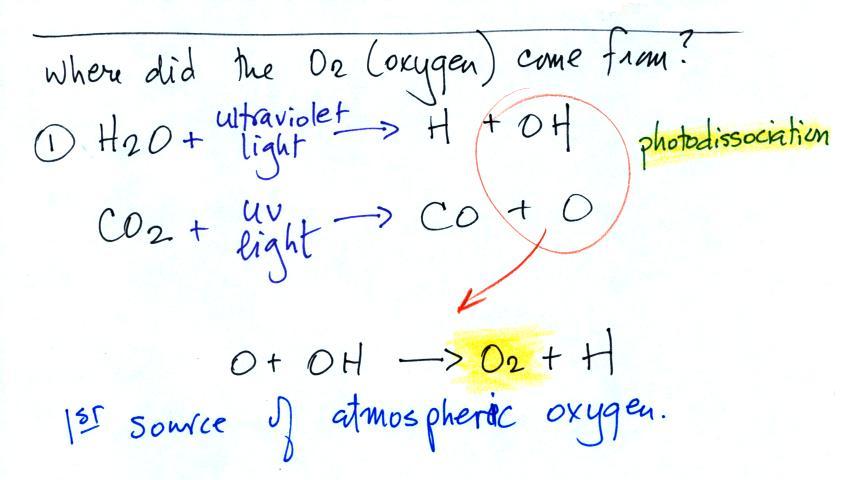 Where did the O2 (oxygen) come from?
① H2O + ultraviolet light → H + OH photodissociation
CO2 + uv light → CO + O
O + OH → O2 + H
1st source of atmospheric oxygen.